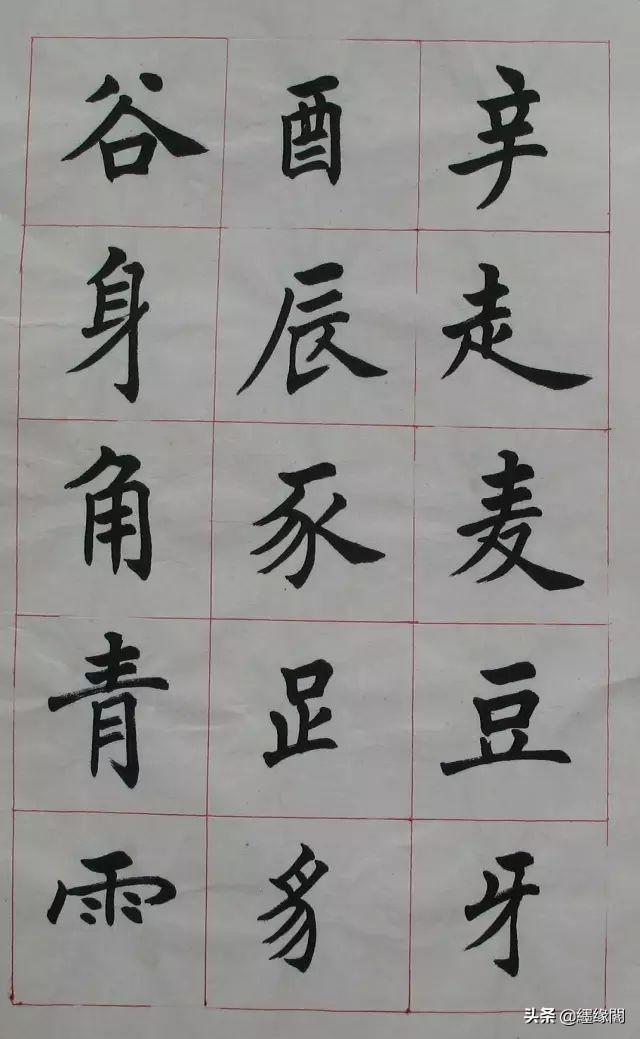 辛走麦豆牙
酉辰豕足豸
谷身角青雨
头条